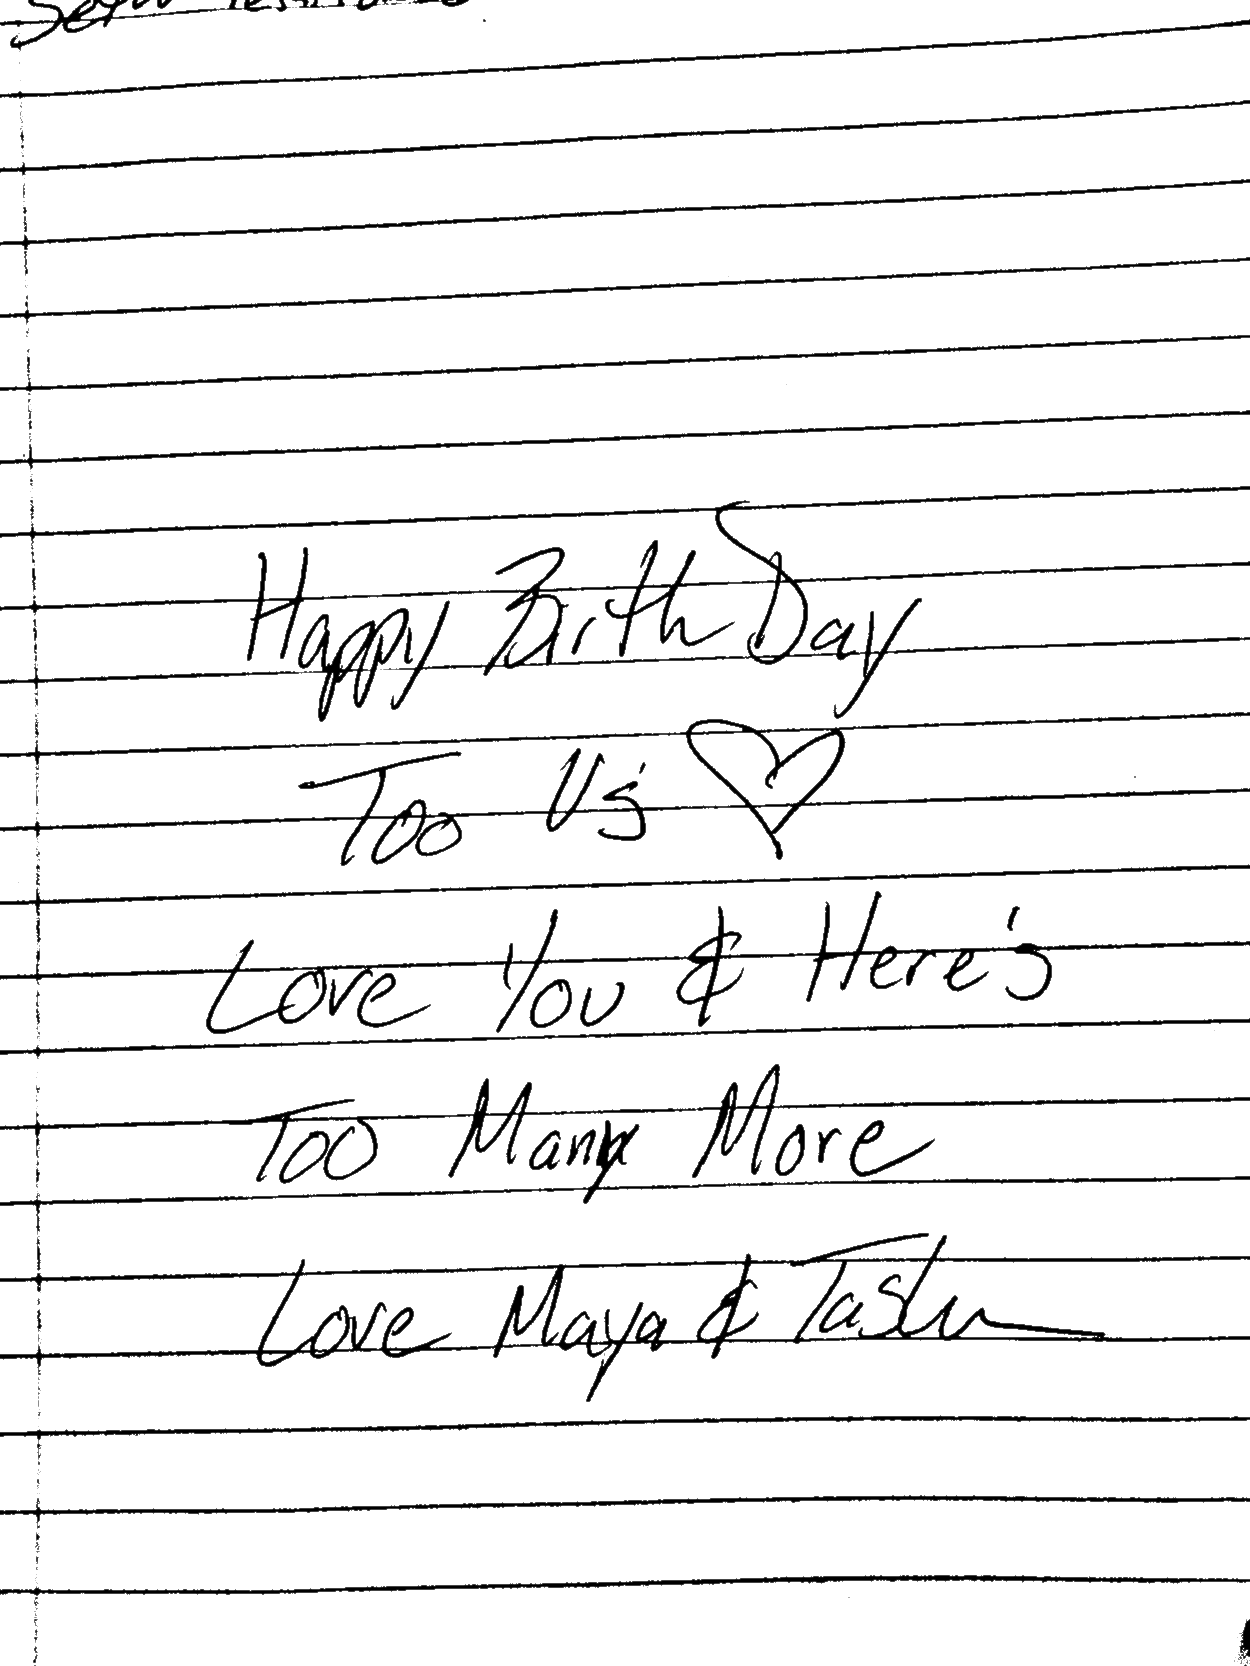 Happy Birth Day
Too Us'
Love You & Here's
Too Many More
Love Maya & Tash